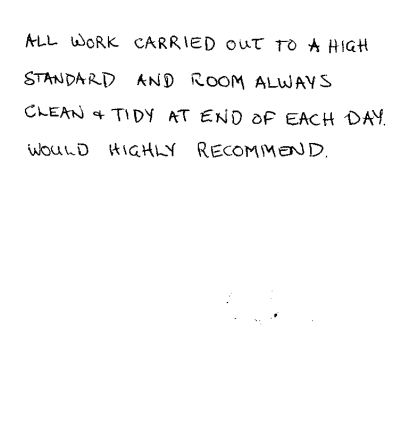 ALL WORK CARRIED OUT TO A HIGH
STANDARD AND ROOM ALWAYS
CLEAN + TIDY AT END OF EACH DAY.
WOULD HIGHLY RECOMMEND.